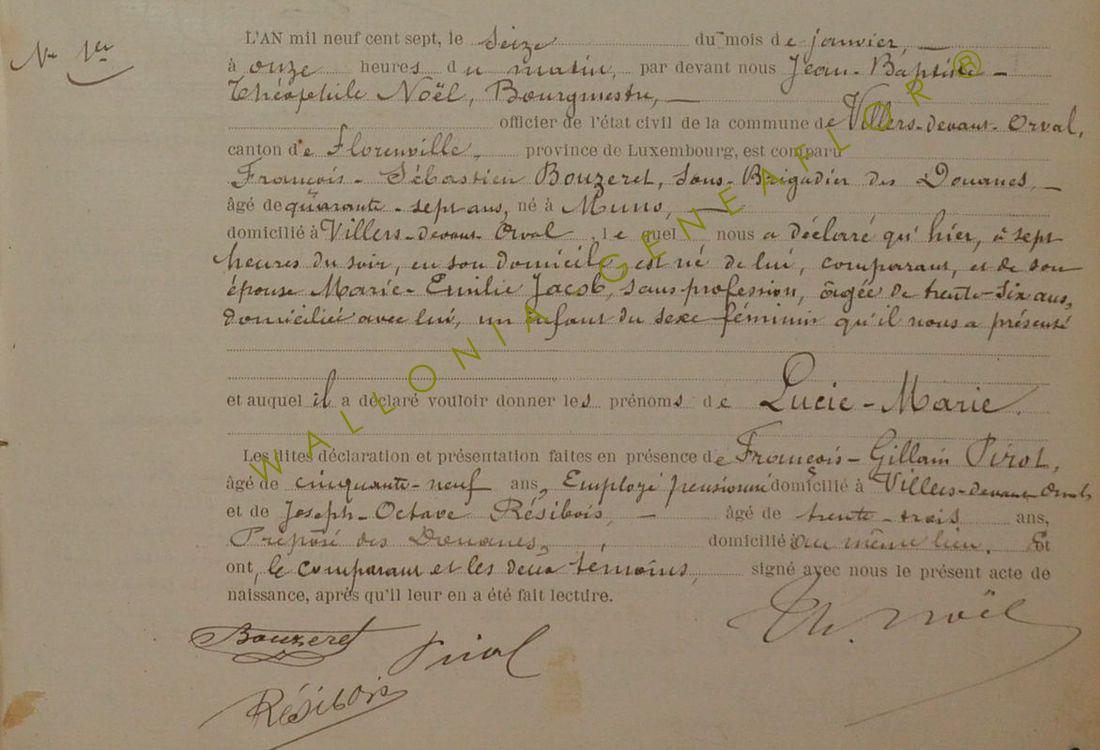 No 1er
L'AN mil neuf cent sept, le seize du mois de janvier,
à onze heures du matin, par devant nous Jean-Baptiste
Théophile Noël, Bourgmestre,
officier de l'état civil de la commune de Villers-devant-Orval,
canton de Florenville, province de Luxembourg, est comparu
François-Sébastien Bouzeret, Sous-Brigadier des Douanes,
âgé de quarante-sept ans, né à Muno,
domicilié à Villers-devant-Orval, lequel nous a déclaré qu'hier, à sept
heures du soir, en son domicile est né de lui, comparant, et de son
épouse Marie-Emilie Jacob, sans profession, âgée de trente-six ans,
domiciliée avec lui, un enfant du sexe féminin qu'il nous a présenté
et auquel il a déclaré vouloir donner les prénoms de Lucie-Marie.
Les dites déclaration et présentation faites en présence de François-Gillain Pirot,
âgé de cinquante-neuf ans, Employé pensionné domicilié à Villers-devant-Orval
et de Joseph-Octave Résibois, âgé de trente-trois ans,
Préposé des Douanes, domicilié au même lieu. Et
ont, le comparant et les deux temoins, signé avec nous le présent acte de
naissance, après qu'il leur en a été fait lecture.
Bouzeret Pirot Th. Noël
Résibois
WALLONIA GENEAFLOR ®